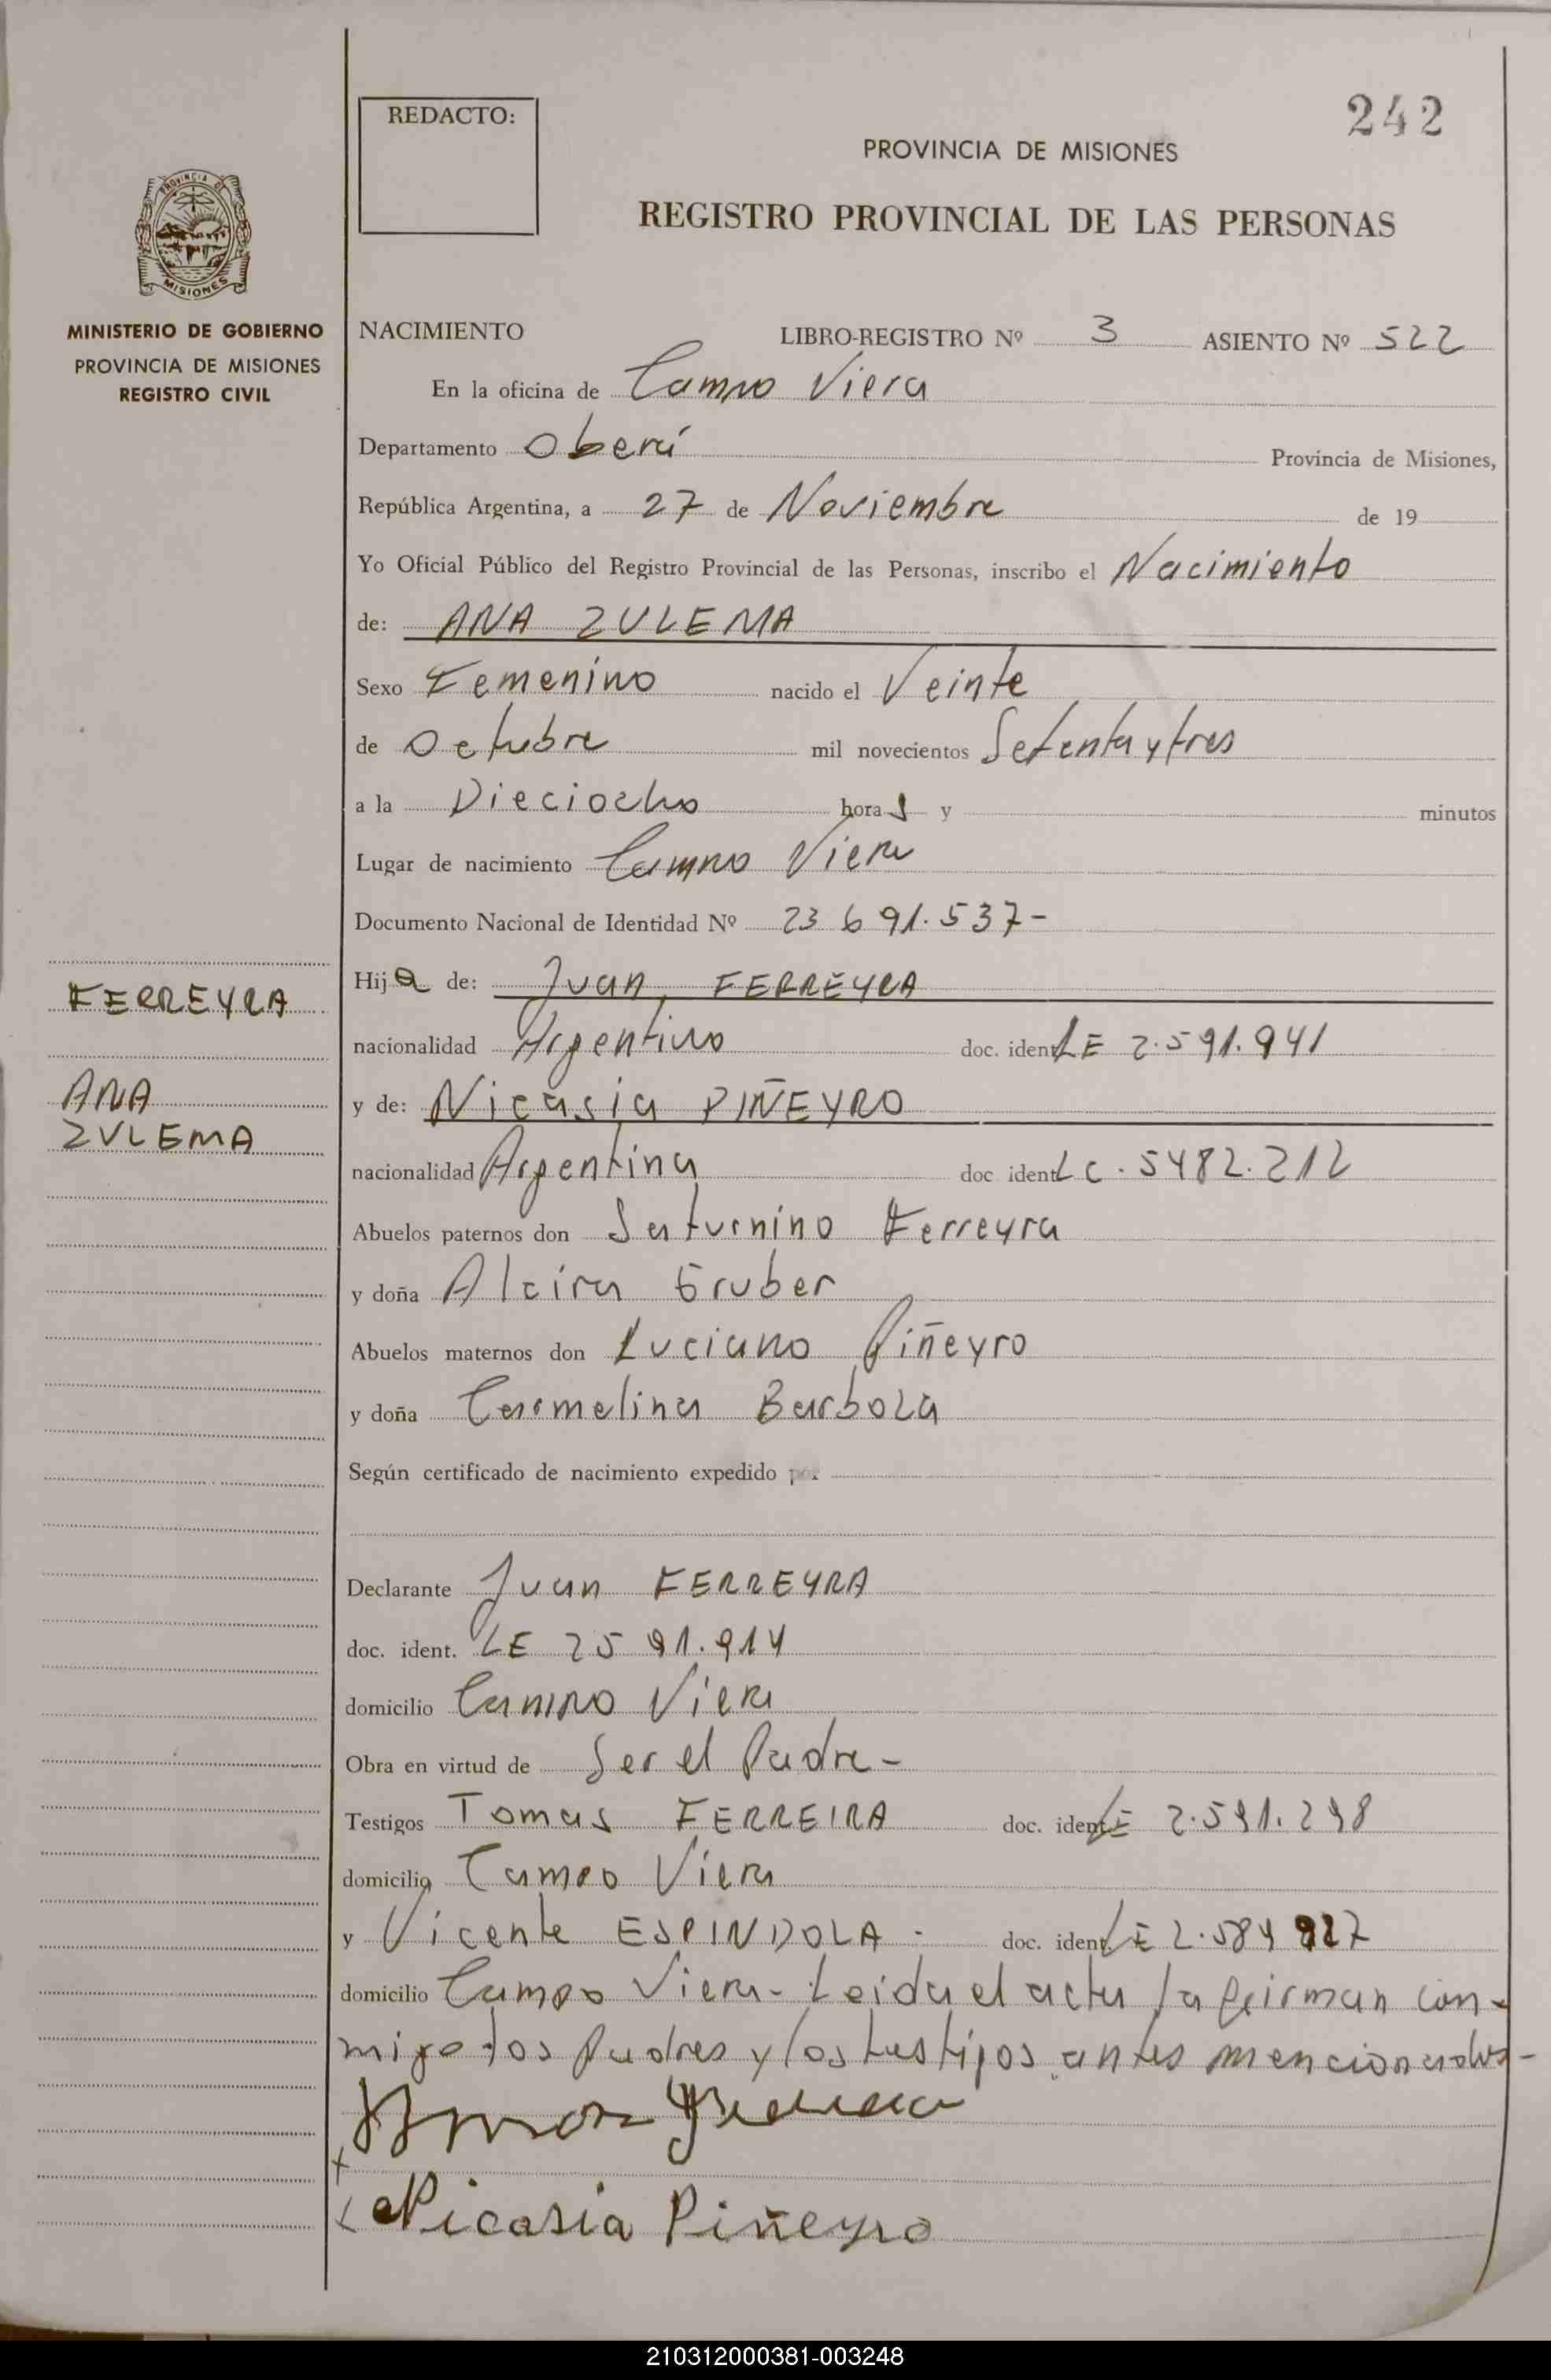 242
REDACTO:
PROVINCIA DE MISIONES
REGISTRO PROVINCIAL DE LAS PERSONAS
PROVINCIA DE
MISIONES
MINISTERIO DE GOBIERNO
PROVINCIA DE MISIONES
REGISTRO CIVIL
NACIMIENTO LIBRO-REGISTRO Nº 3 ASIENTO Nº 522
En la oficina de Campo Viera
Departamento Oberá Provincia de Misiones,
República Argentina, a 27 de Noviembre de 19
Yo Oficial Público del Registro Provincial de las Personas, inscribo el Nacimiento
de: ANA ZULEMA
Sexo Femenino nacido el Veinte
de Octubre mil novecientos Setenta y tres
a la Dieciocho hora s y minutos
Lugar de nacimiento Campo Viera
Documento Nacional de Identidad Nº 23 691.537-
Hij a de: Juan, FERREYRA
nacionalidad Argentino doc. ident. LE 2.591.941
y de: Nicasia PIÑEYRO
nacionalidad Argentina doc ident. LC. 5482.212
Abuelos paternos don Saturnino Ferreyra
y doña Alcira Gruber
Abuelos maternos don Luciano Piñeyro
y doña Carmelina Barboza
Según certificado de nacimiento expedido por
Declarante Juan FERREYRA
doc. ident. LE 25 91.914
domicilio Campo Viera
Obra en virtud de Ser el Padre-
Testigos Tomas FERREIRA doc. ident. LE 2.591.298
domicilio Campo Viera
y Vicente ESPINDOLA - doc. ident. LE 2.584 927
domicilio Campo Viera- Leida el acta la firman con-
migo los Padres y los testigos antes mencionados-
Nicasia Piñeyro
FERREYRA
ANA
ZULEMA
210312000381-003248